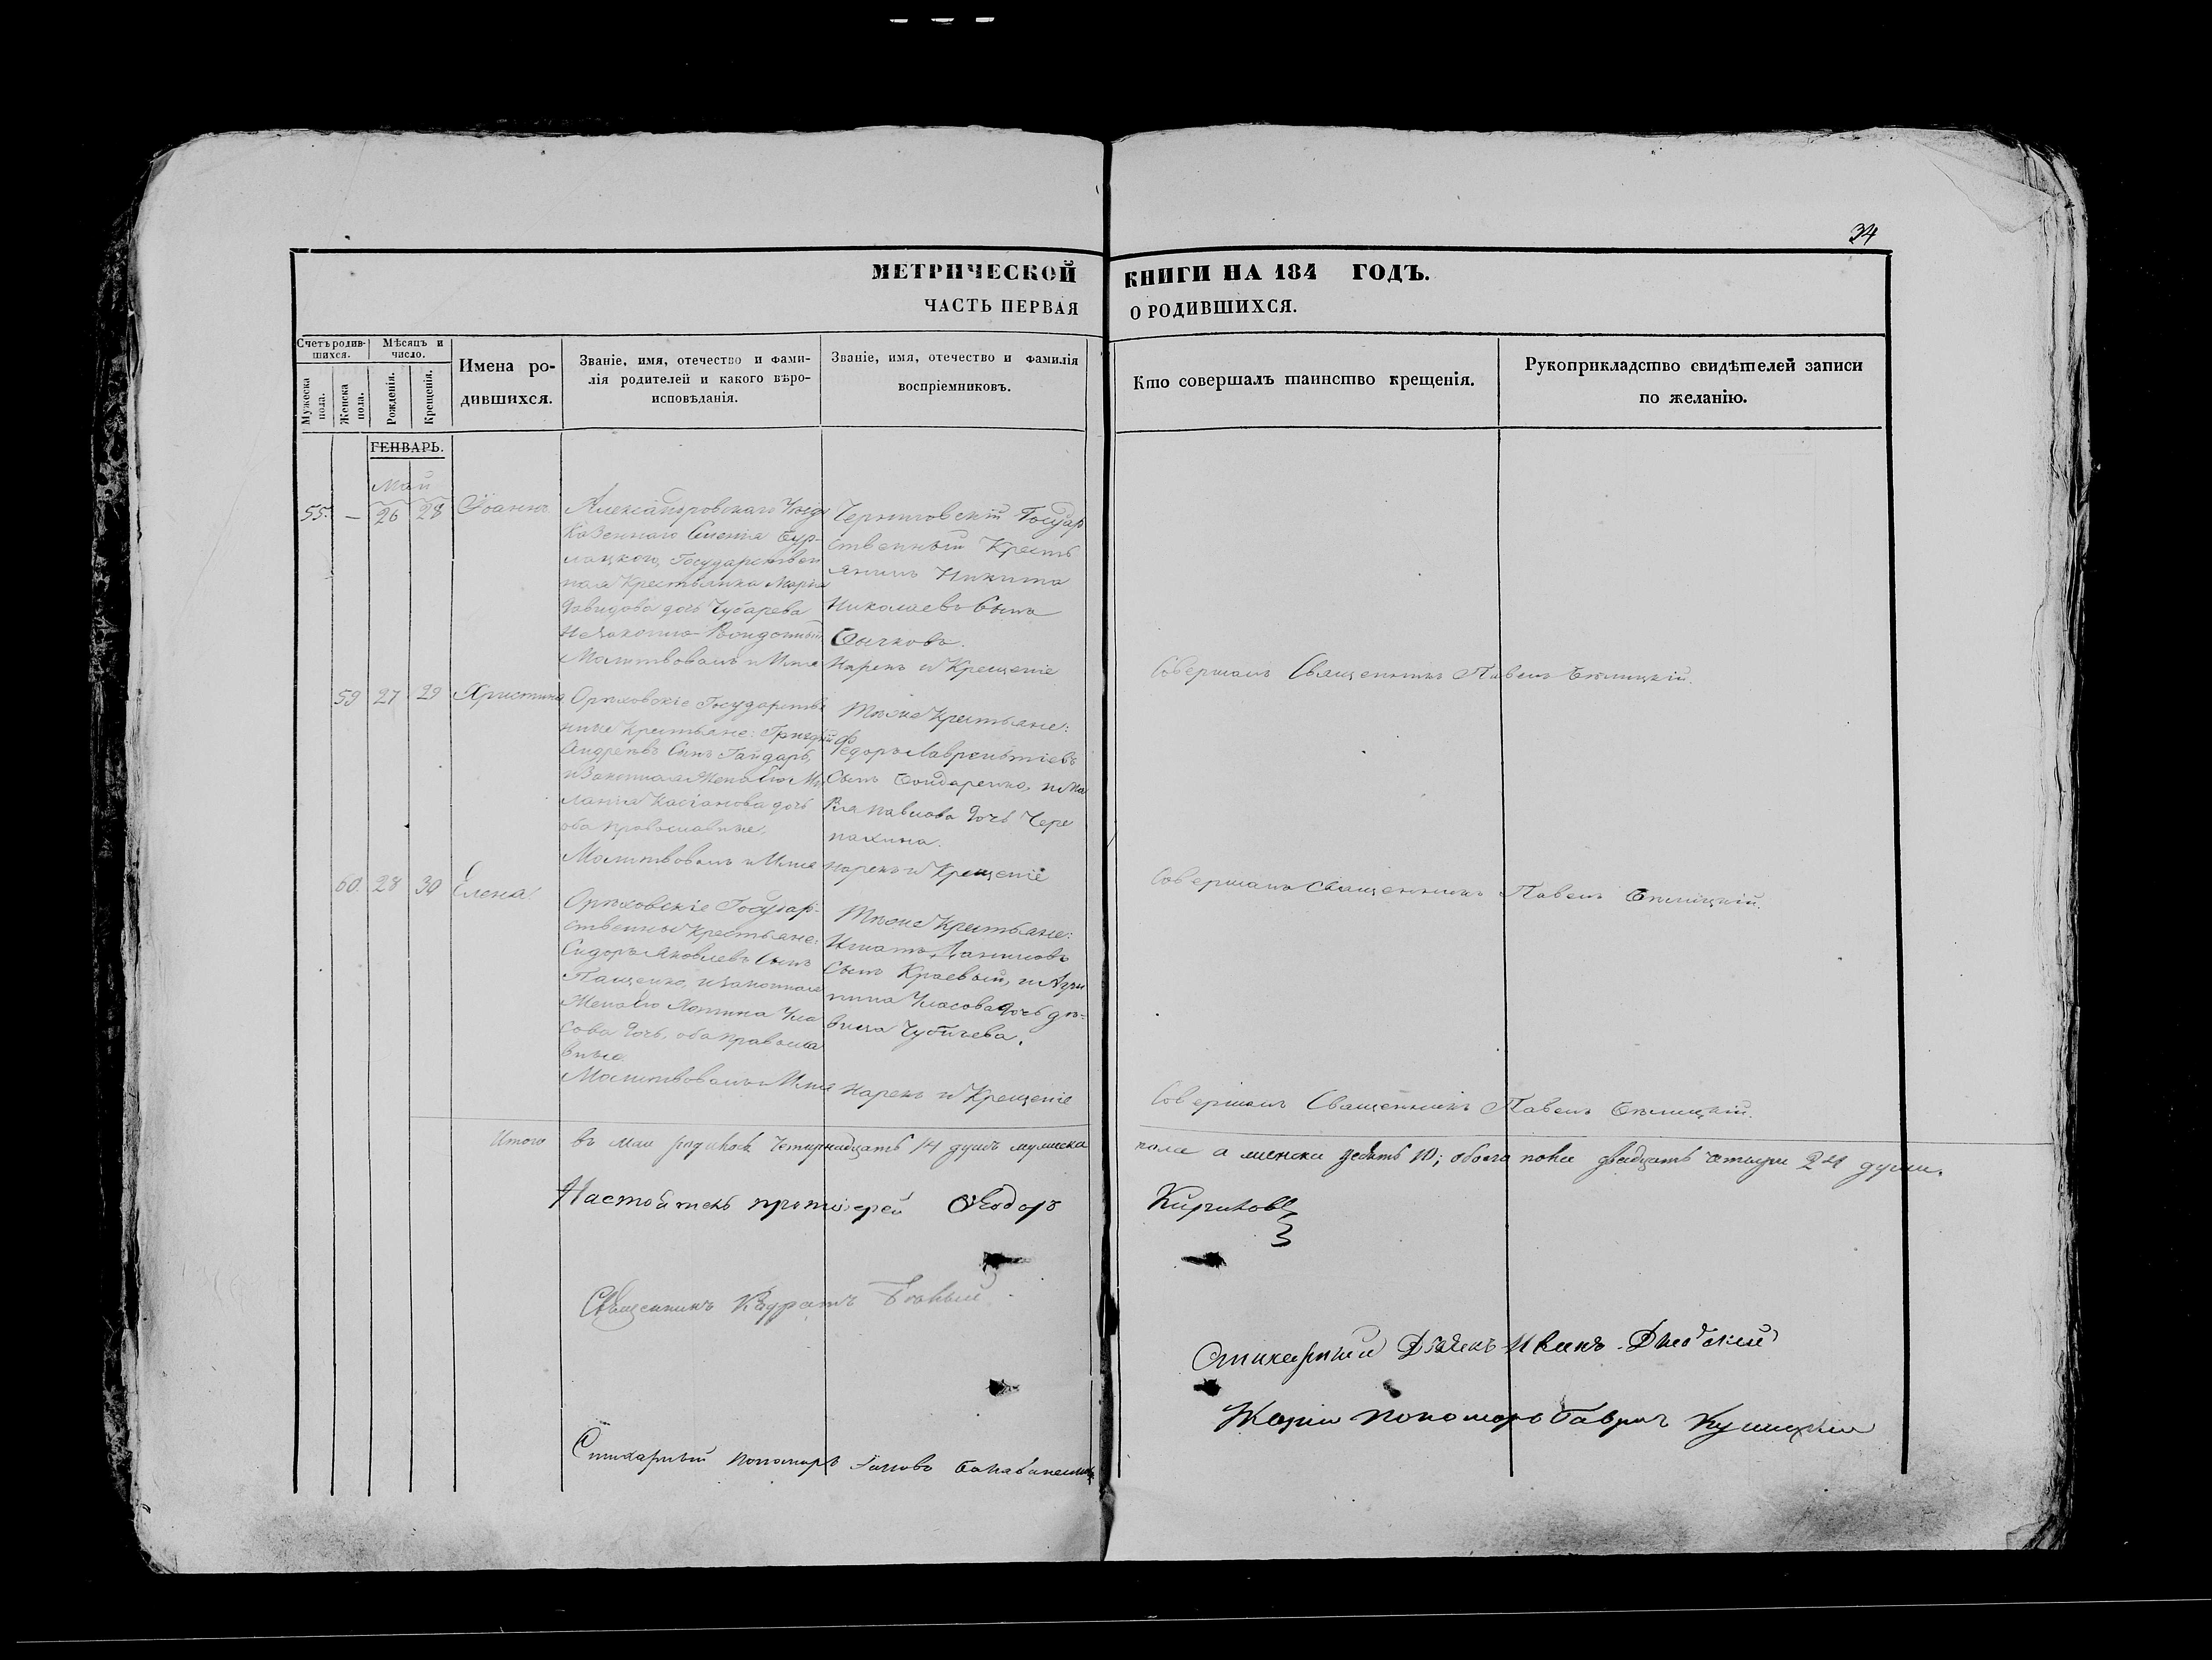 34
МЕТРИЧЕСКОЙ КНИГИ НА 184 ГОДЪ.
ЧАСТЬ ПЕРВАЯ О РОДИВШИХСЯ.
Счетъ родившихся.
Мужеска пола.
Женска пола.
Мѣсяцъ и число.
Рожденія.
Крещенія.
Имена родившихся.
Званіе, имя, отечество и фамилія родителей и какого вѣроисповѣданія.
Званіе, имя, отечество и фамилія воспріемниковъ.
Кто совершалъ таинство крещенія.
Рукоприкладство свидѣтелей записи по желанію.
ГЕНВАРЬ.
Май
55. — 26 28 Іоаннъ
Александровскаго Уѣзда
Казеннаго Селенія
Государствен
ная Крестьянка Марія
Давидова дочь Чубарева
Молитвовалъ и Имя
Черниговскій Государ
ственный Кресть
янинъ Никита
Николаевъ Сынъ
Бычковъ.
Нарекъ и Крещеніе
Совершалъ Священникъ Павелъ Бѣлицкій.
59 27 29 Христина
Орѣховскіе Государстве
нные Крестьяне: Григорій
Андреевъ Сынъ Гайдаръ,
и Законная Жена его Ме
ланія Касіанова дочь
оба православные.
Молитвовалъ и Имя
Тѣже Крестьяне:
Федоръ Лаврентіевъ
Сынъ Бондаренко, и Ма
рія Павлова Дочь Чере
пахина.
нарекъ и Крещеніе
Совершалъ Священникъ Павелъ Бѣлицкій.
60. 28 30 Елена
Орѣховскіе Государ-
ственные Крестьяне:
Сидоръ Яковлевъ Сынъ
Пащенко, и законная
Жена его
сова Дочь, оба правосла
вные.
Молитвовалъ и Имя
Тѣже Крестьяне:
Игнатъ Даниловъ
Сынъ Краевый, и Агри
пина Власова Дочь дѣ-
вица
Нарекъ и Крещеніе
Совершалъ Священникъ Павелъ Бѣлицкій.
Итого въ маи родилось четырнадцать 14 душъ мужеска пола а женска десять 10; обоего пола двадцать четыре 24 души.
Настоятель протоіерей Ѳеодоръ
Священникъ Кодратъ Бѣлый
Стихарный Дьячекъ Иванъ
Стихарный пономарь
пономарь Гавріилъ